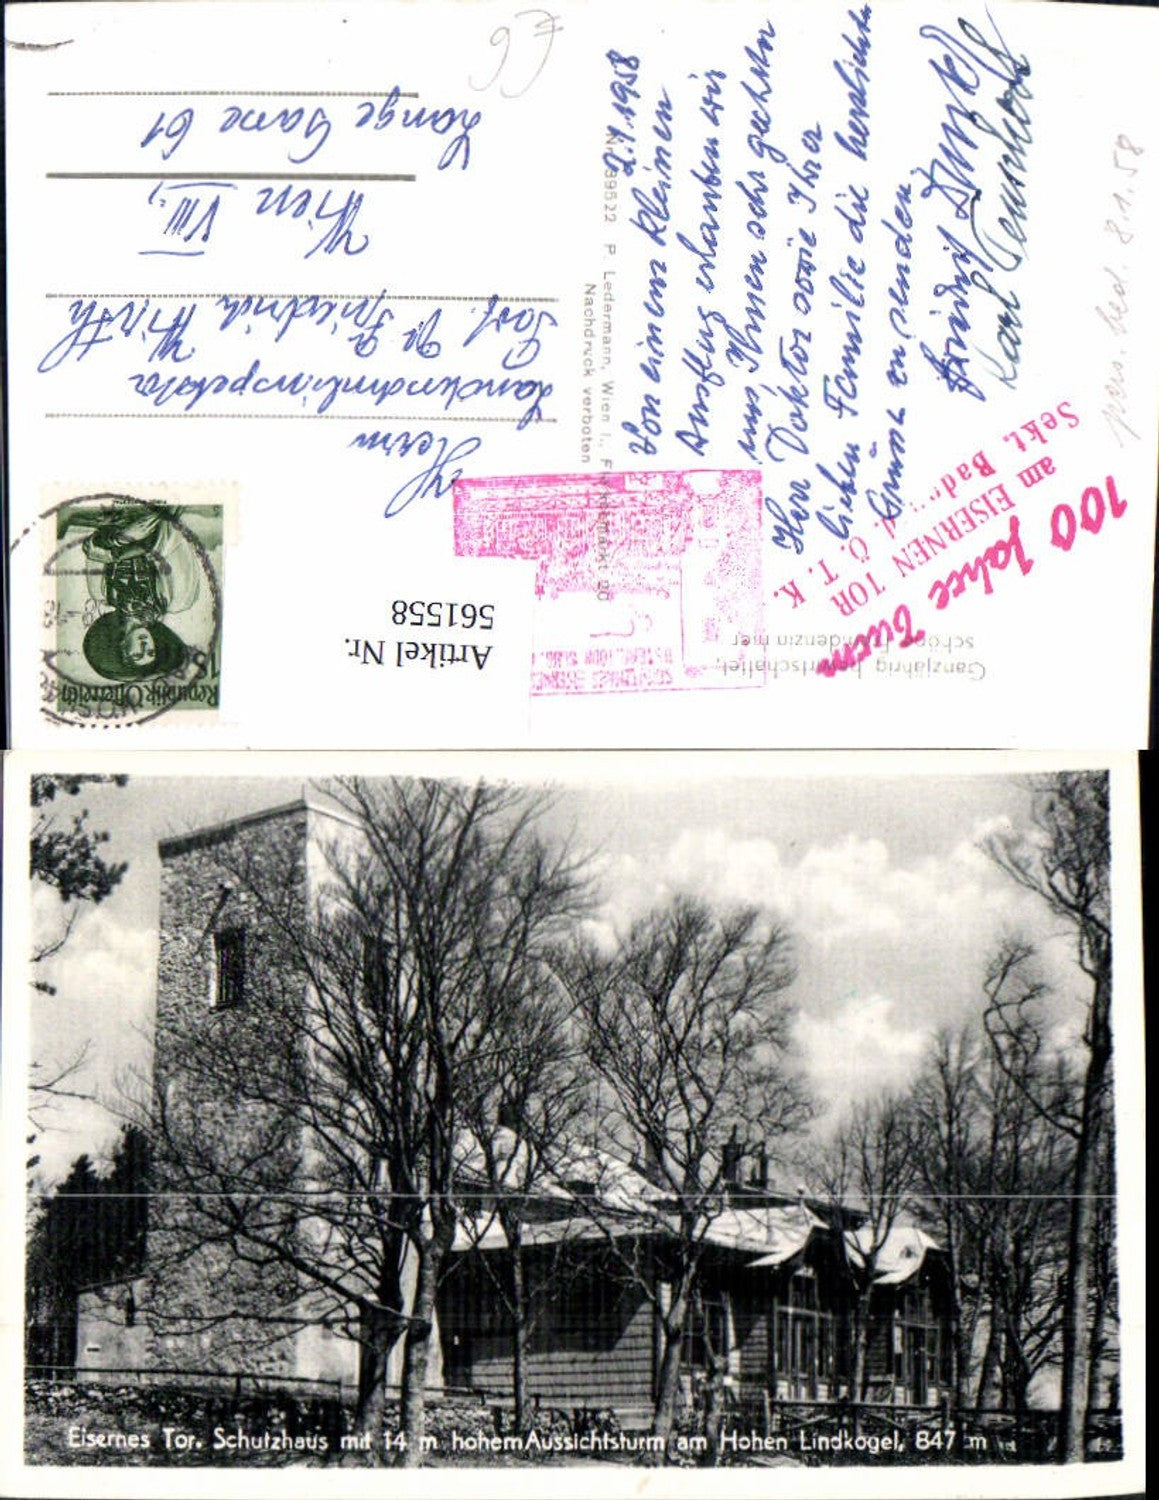 97
2.1.1958
Von einem kleinen
Ausflug erlauben wir
uns, Ihnen sehr geehrter
Herr Doktor sowie Ihrer
lieben Familie die herzlichsten
Grüsse zu senden.
Karl
pers. bed. 8.1.58
Nr. 39522 P. Ledermann, Wien I.,
Nachdruck verboten
Herrn
Landesschulinspektor
Prof. Dr. Friedrich Wirth
Wien VIII.,
Lange Gasse 61
Republik Österreich
1 S
Artikel Nr.
561558
100 Jahre Turm
am EISERNEN TOR
Sekt. Baden d. Ö. T. K.
Ganzjährig bewirtschaftet,
schöne Fremdenzimmer
Eisernes Tor. Schutzhaus mit 14 m hohem Aussichtsturm am Hohen Lindkogel, 847 m